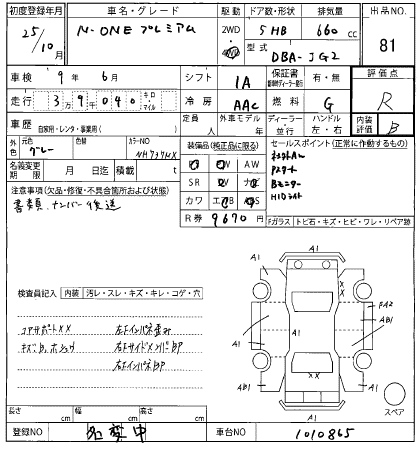 初度登録年月 車名・グレード 駆動 ドア数・形状 排気量 出品NO.
25/10月 N-ONE プレミアム 2WD 4WD 5HB 660cc 81
型式 DBA-JG2
車検 9年 6月 シフト IA 保証書 有・無 評価点
走行 39040 キロ・マイル 冷房 AAC 燃料 G R
車歴 自家用・レンタ・事業用( ) 定員 人 外車モデル 年 ディーラー・並行 ハンドル 左・右 内装評価 B
外色 元色 グレー 色替 カラーNO NH737MX
装備品(純正品に限る) セールスポイント(正常に作動するもの)
名義変更期限 月 日 積載 t
PS PW AW
SR TV ナビ
カワ エアB ABS
Pスタート
Bモニター
HIDライト
R券 9670円
注意事項(欠品・修復・不具合箇所および状態)
書類、ナンバー後送
Fガラス トビ石・キズ・ヒビ・ワレ・リペア跡
検査員記入 内装 汚レ・スレ・キズ・キレ・コゲ・穴
コアサポートXX
左インパネ歪み
キズ、B、ホショウ
右サイドメンバBP
右インパネBP
A1
A1
A1
X
X
PA2
AB1
A1
A1
XX
AB1
A1
A1
スペア
長さ cm 幅 cm 高さ cm
登録NO 名変中 車台NO 1010865